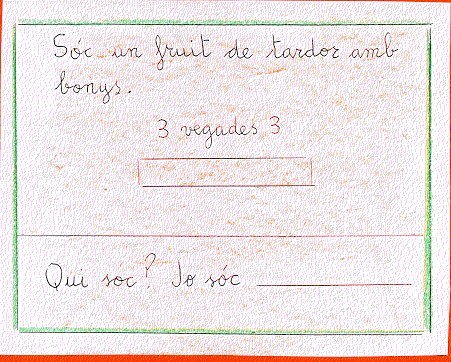 Sóc un fruit de tardor amb
bonys.
3 vegades 3
Qui sóc? Jo sóc